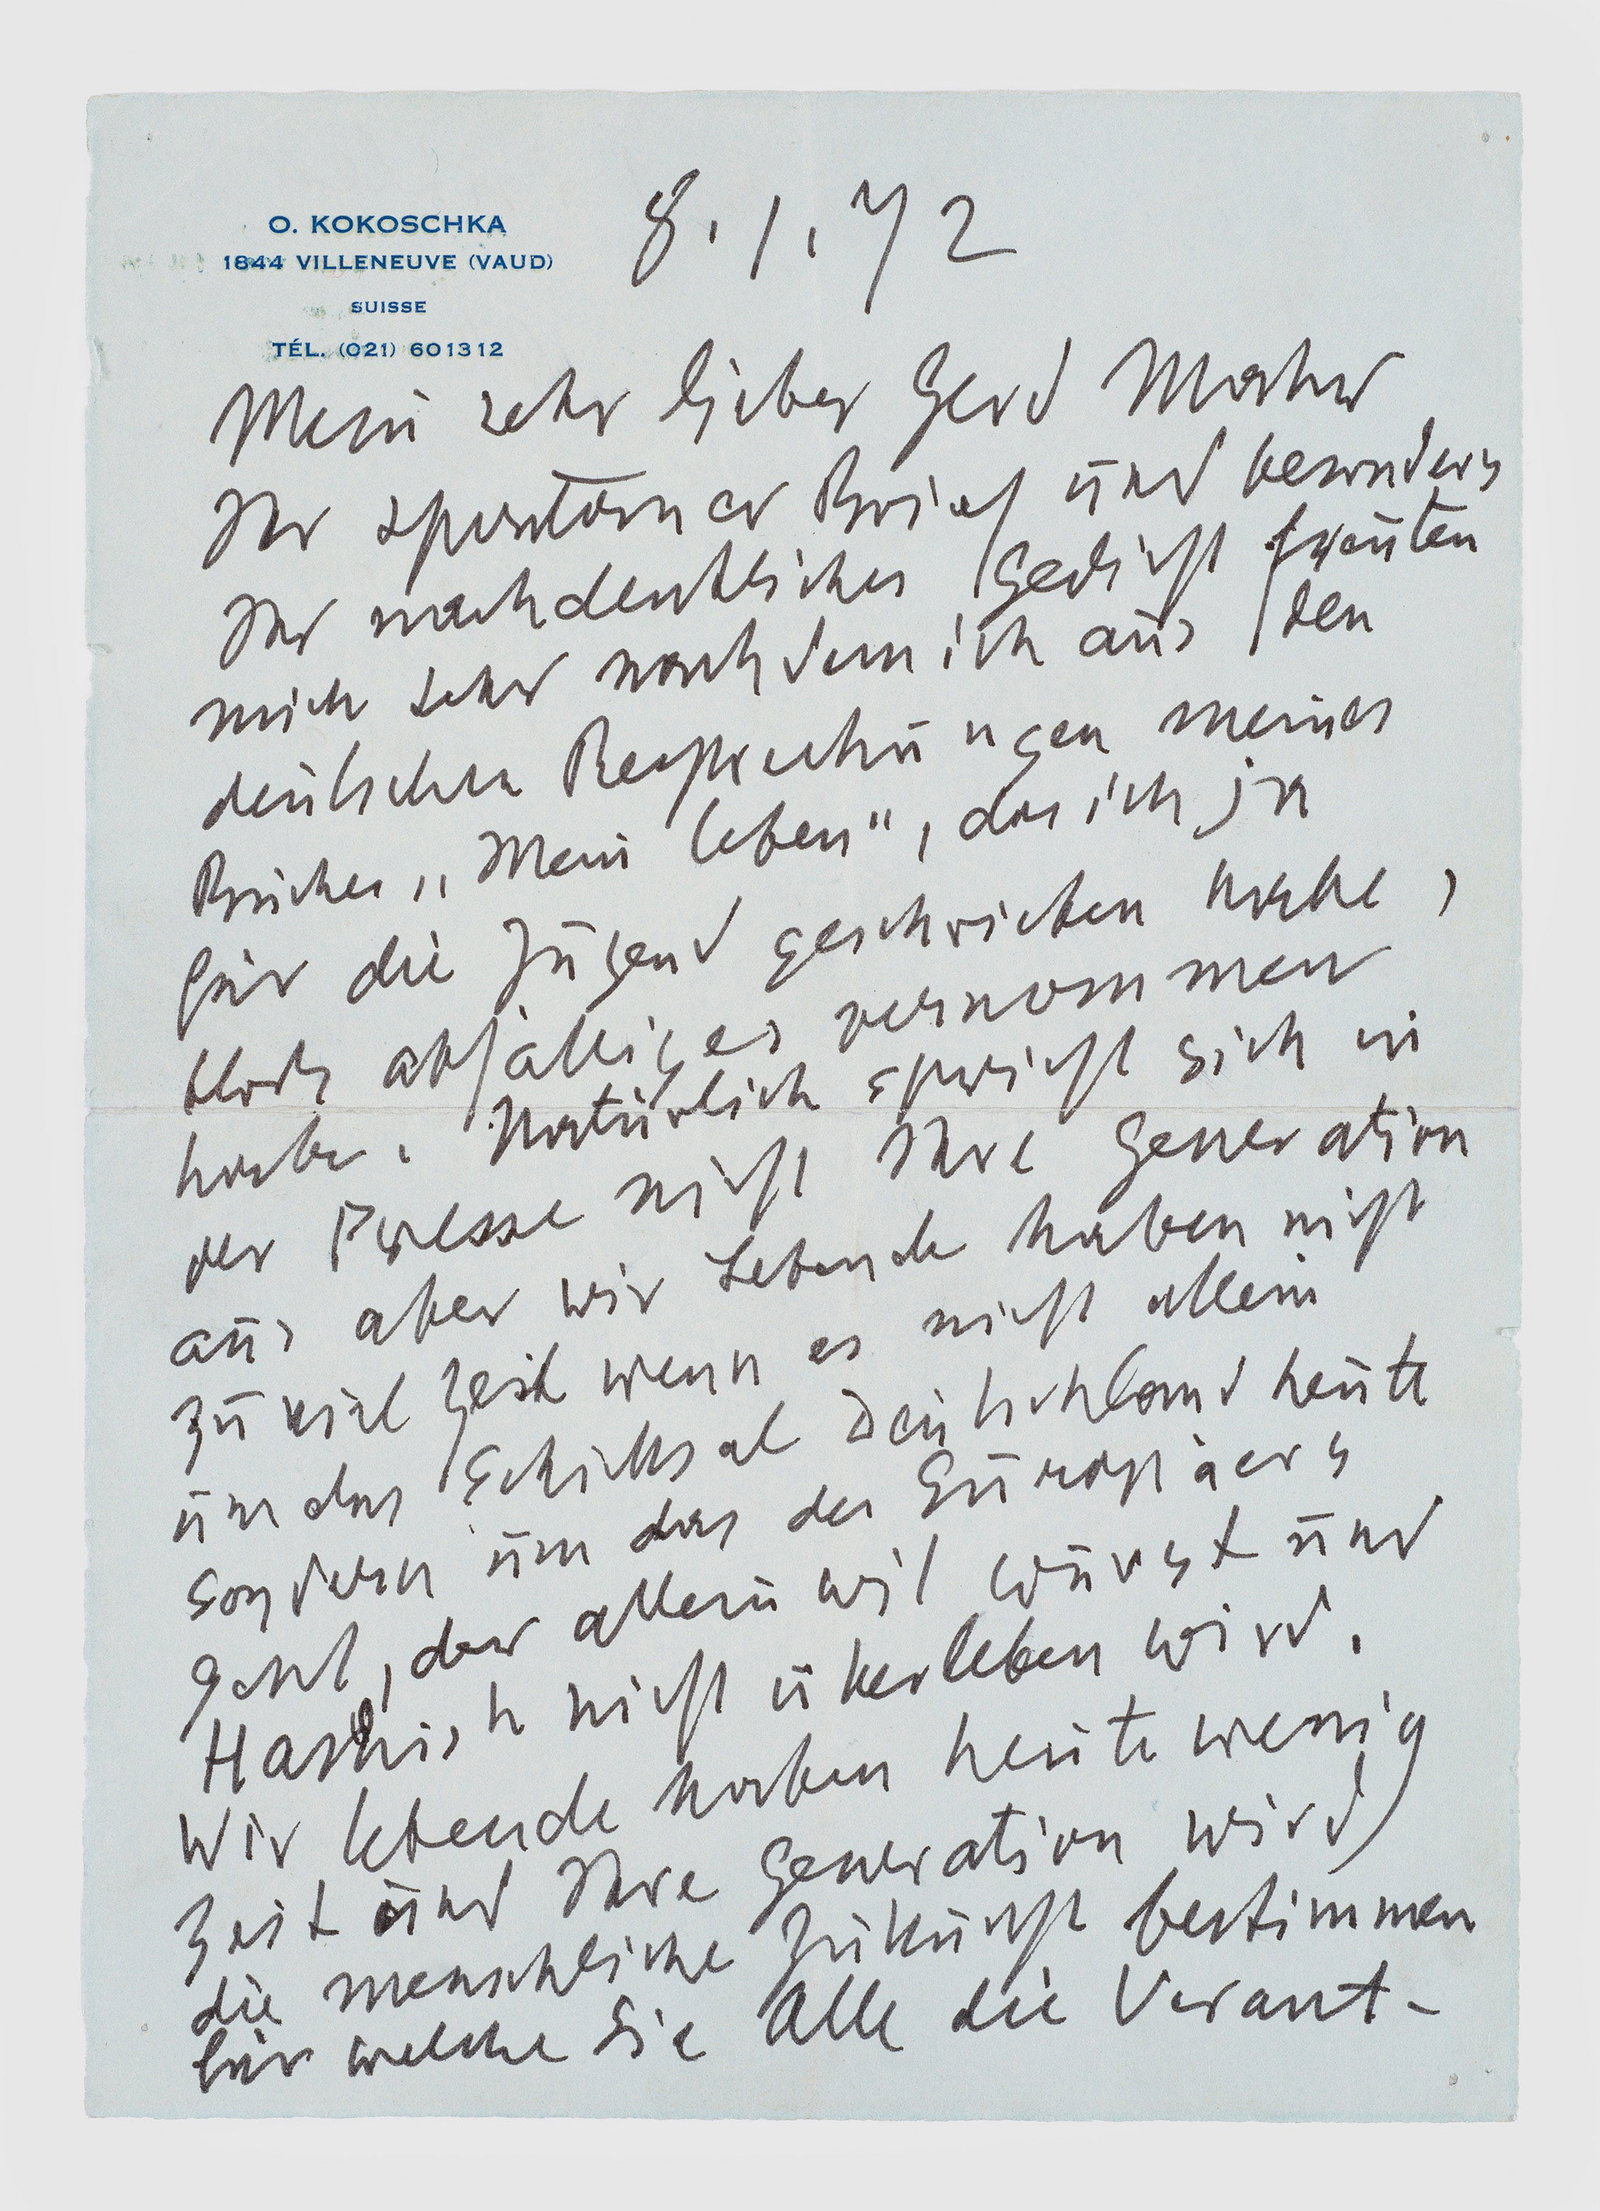 O. KOKOSCHKA
1844 VILLENEUVE (VAUD)
SUISSE
TÉL. (021) 601312
8.1.72
Mein sehr lieber Gerd
Ihr spontaner Brief und besonders
Ihr nachdenkliches Gedicht freuten
mich sehr nachdem ich aus den
deutschen Besprechungen meines
Buches „Mein Leben", das ich ja
für die Jugend geschrieben habe,
bloss abfälliges vernommen
habe. Natürlich spricht sich in
der Presse nicht Ihre Generation
aus aber wir Lebende haben nicht
zu viel Zeit wenn es nicht allein
um das Schicksal Deutschland heute
sondern um das des Europäers
geht, der allein mit Wurst und
Hashish nicht überleben wird.
Wir lebende haben heute wenig
Zeit und Ihre Generation wird
die menschliche Zukunft bestimmen
für welche Sie Alle die Verant-